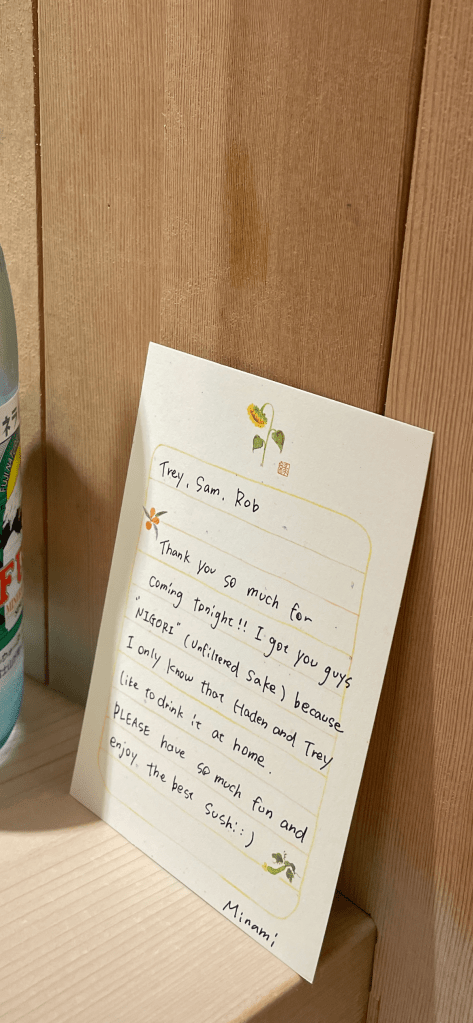 Trey, Sam, Rob
Thank you so much for
coming tonight!! I got you guys
"NIGORI" (Unfiltered Sake) because
I only know that Haden and Trey
like to drink it at home.
PLEASE have so much fun and
enjoy. the best Sushi :)
Minami
ネラ